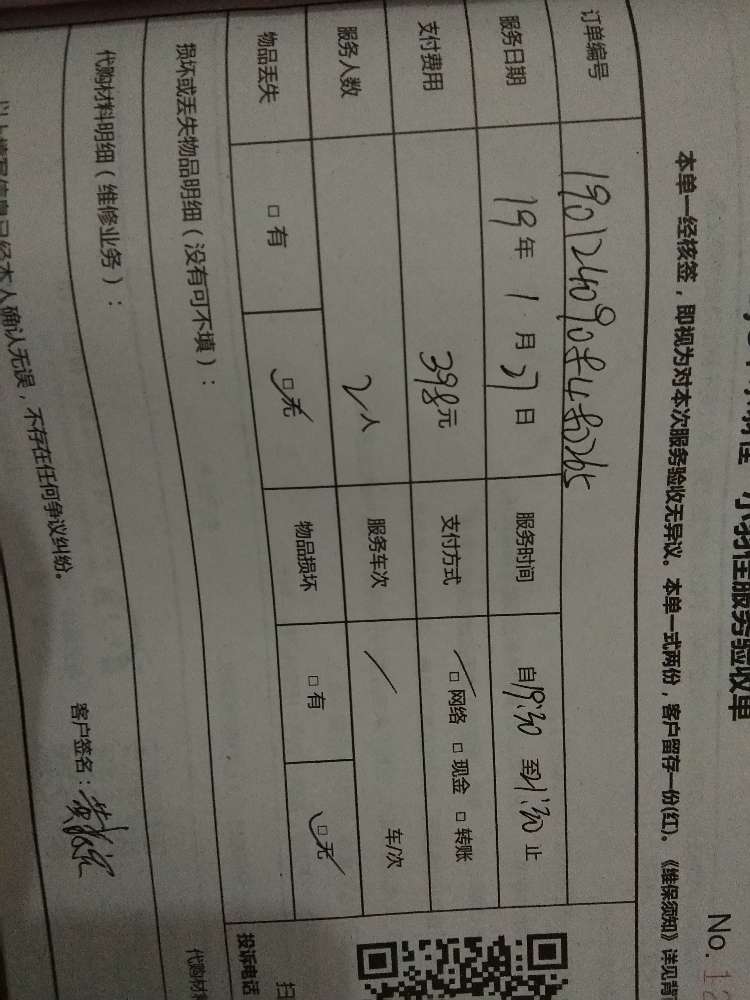 小羽佳服务验收单
No. 12
本单一经核签，即视为对本次服务验收无异议。本单一式两份，客户留存一份(红)。《维保须知》详见背
订单编号
服务日期 19年 1月 27日 服务时间 自19:30 至21:30止
支付费用 398元 支付方式 □网络 □现金 □转账
服务人数 2人 服务车次 / 车/次
物品丢失 □有 □无 物品损坏 □有 □无
损坏或丢失物品明细（没有可不填）：
代购材料明细（维修业务）：
代购材料
以上填写信息已经本人确认无误，不存在任何争议纠纷。
客户签名：
扫
投诉电话